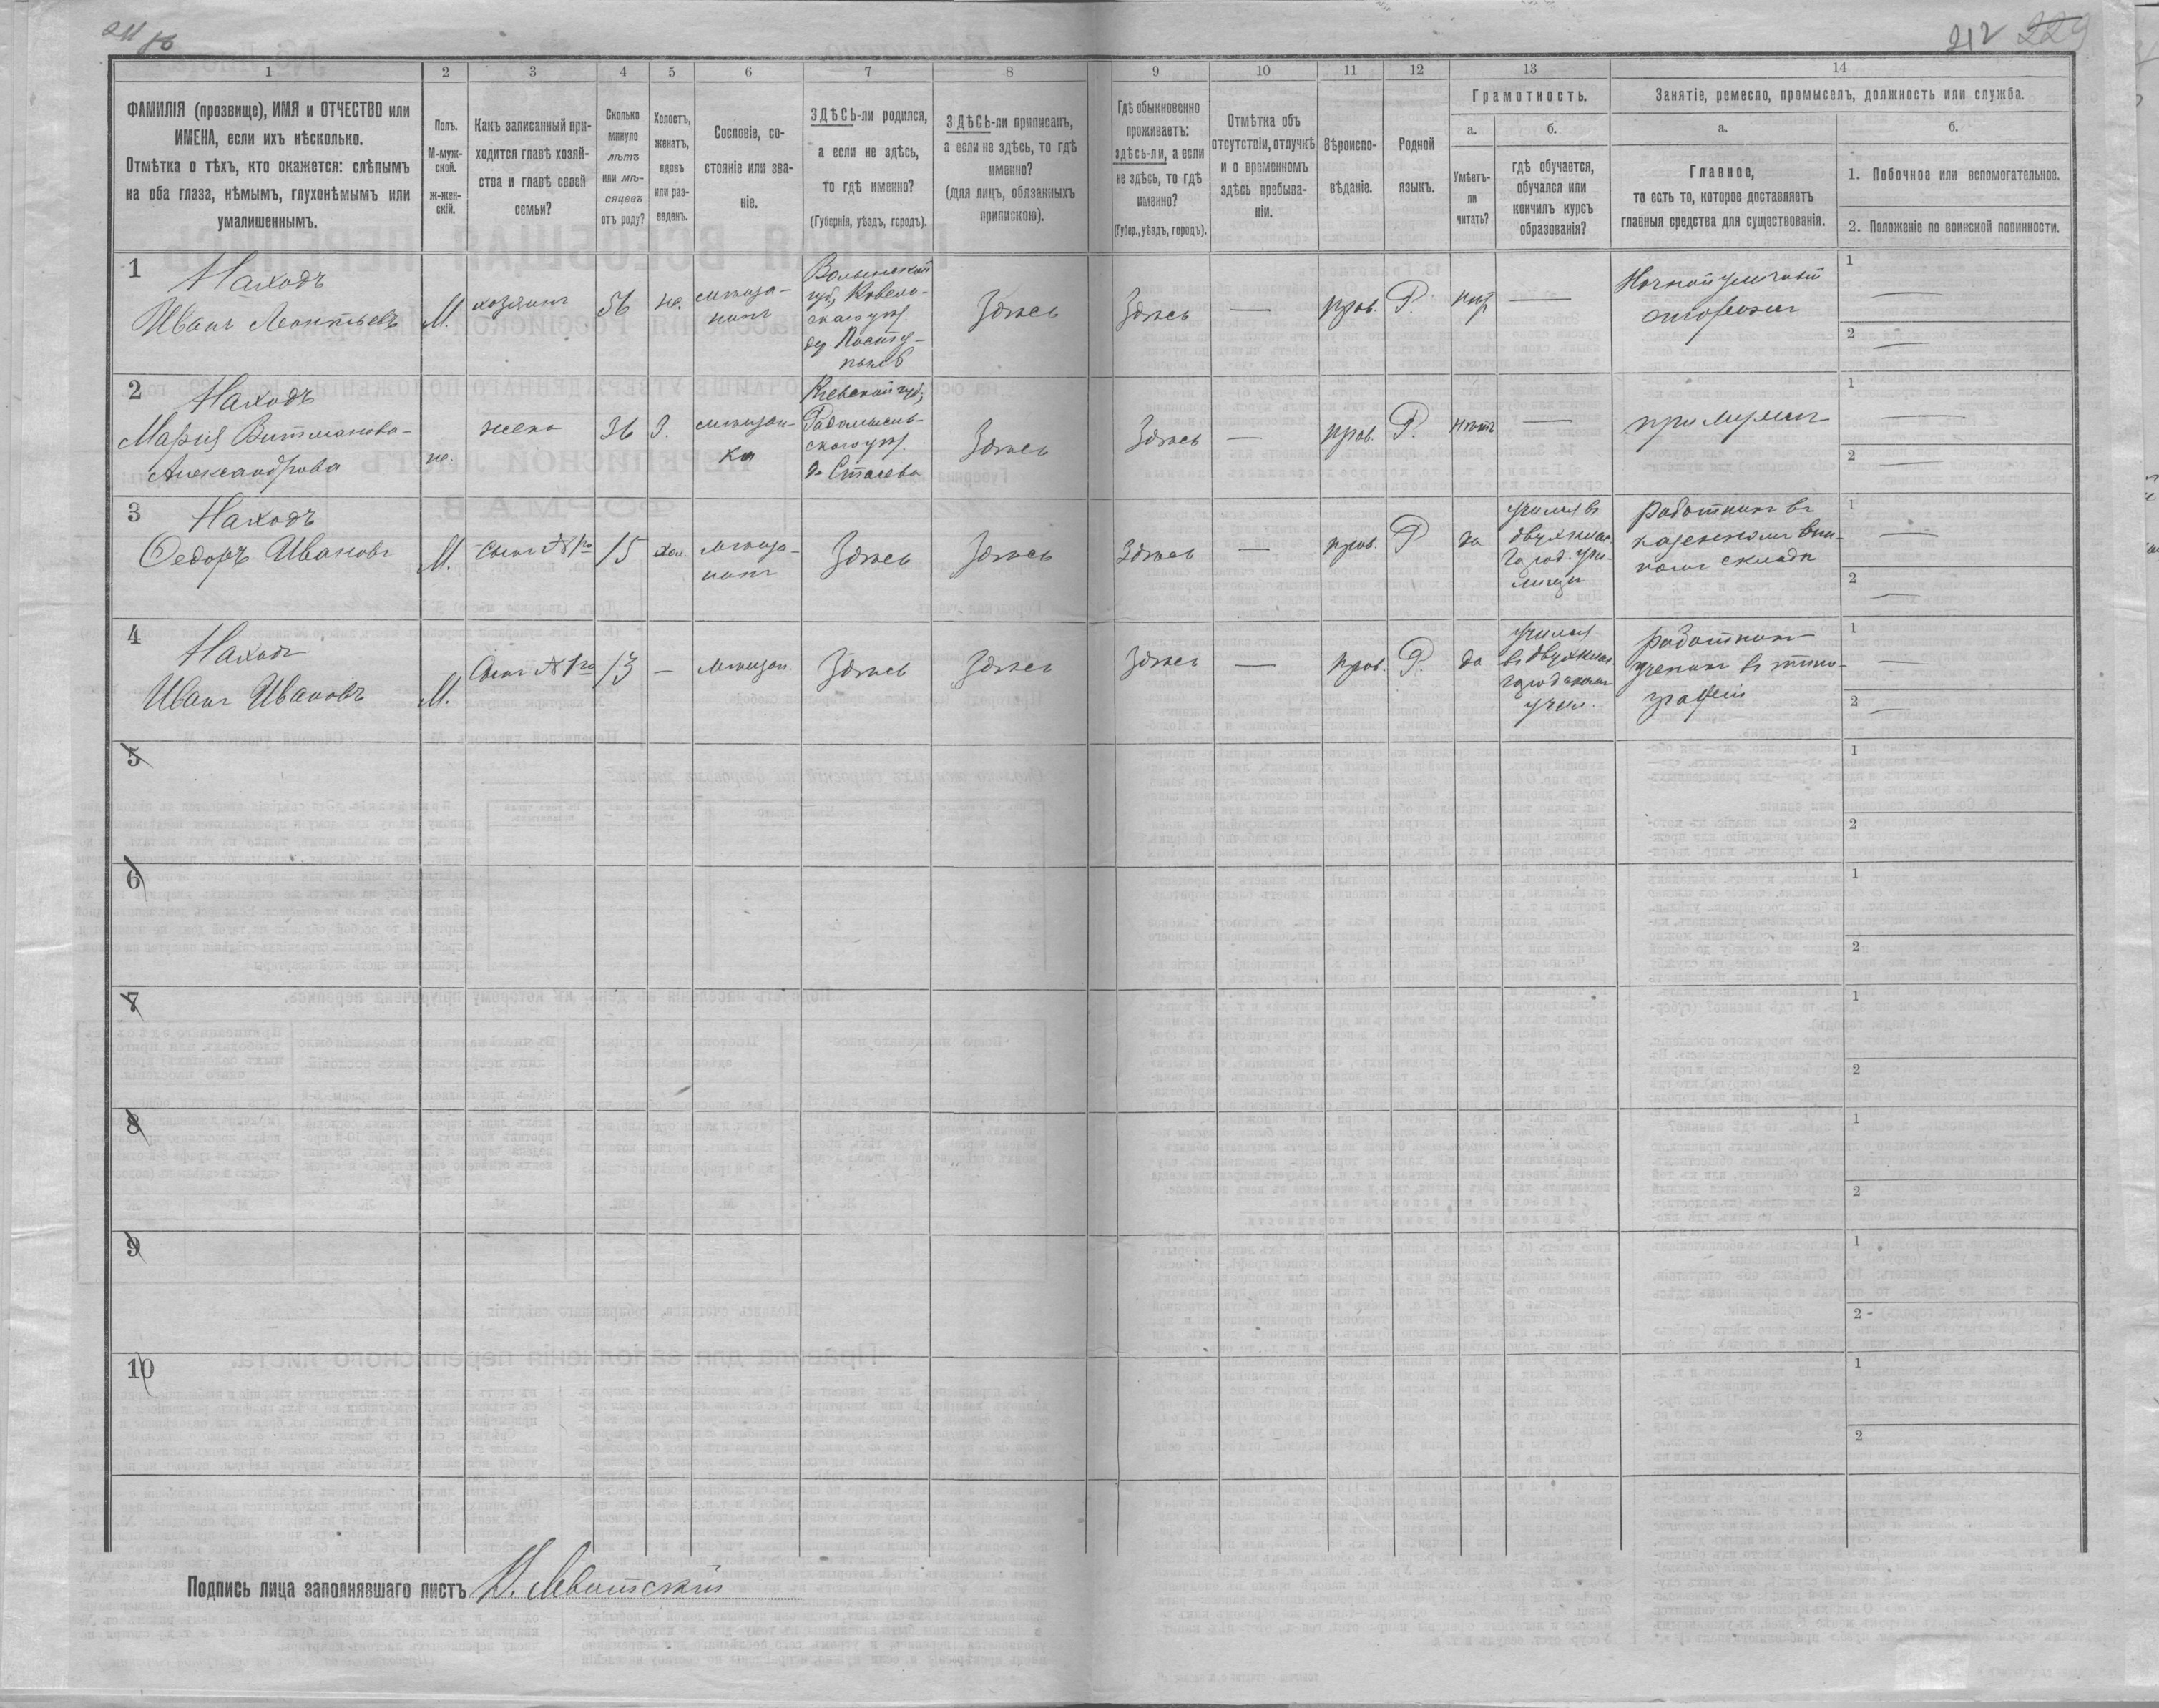 212 229
1 2 3 4 5 6 7 8 9 10 11 12 13 14
ФАМИЛІЯ (прозвище), ИМЯ и ОТЧЕСТВО или
ИМЕНА, если ихъ нѣсколько.
Отмѣтка о тѣхъ, кто окажется: слѣпымъ
на оба глаза, нѣмымъ, глухонѣмымъ или
умалишеннымъ.
Полъ.
М-муж-
ской.
ж-жен-
скій.
Какъ записанный при-
ходится главѣ хозяй-
ства и главѣ своей
семьи?
Сколько
минуло
лѣтъ
или мѣ-
сяцевъ
отъ роду?
Холостъ,
женатъ,
вдовъ
или раз-
веденъ.
Сословіе, со-
стояніе или зва-
ніе.
ЗДѢСЬ-ли родился,
а если не здѣсь,
то гдѣ именно?
(Губернія, уѣздъ, городъ).
ЗДѢСЬ-ли приписанъ,
а если не здѣсь, то гдѣ
именно?
(для лицъ, обязанныхъ
припискою).
Гдѣ обыкновенно
проживаетъ:
здѣсь-ли, а если
не здѣсь, то гдѣ
именно?
(Губер., уѣздъ, городъ).
Отмѣтка объ
отсутствіи, отлучкѣ
и о временномъ
здѣсь пребыва-
ніи.
Вѣроиспо-
вѣданіе.
Родной
языкъ.
Грамотность.
а.
Умѣетъ-
ли
читать?
б.
гдѣ обучается,
обучался или
кончилъ курсъ
образованія?
Занятіе, ремесло, промыселъ, должность или служба.
а.
Главное,
то есть то, которое доставляетъ
главныя средства для существованія.
б.
1. Побочное или вспомогательное.
2. Положеніе по воинской повинности.
1
Находъ
Иванъ Леонтьевъ
М.
хозяинъ
56
же.
мѣща-
нинъ
Волынской
губ, Ковель-
скаго уѣз.
дер.
Здѣсь
Здѣсь
—
прав.
Р.
—
Ночной уличный
сторожъ
1 —
2 —
2
Находъ
Марія
Александрова
же.
жена
36
З.
мѣщан-
ка
Кіевской губ,
Радомысль-
скаго уѣз.
Здѣсь
Здѣсь
—
прав.
Р.
нѣтъ
—
при мужѣ
1 —
2 —
3
Находъ
Федоръ Ивановъ
М.
Сынъ № 1го
15
хол.
мѣща-
нинъ
Здѣсь
Здѣсь
Здѣсь
—
прав.
Р
да
учился въ
двухклас.
город. учи-
лищѣ
работникъ въ
казенномъ вин-
номъ складѣ
1 —
2 —
4
Находъ
Иванъ Ивановъ
М.
Сынъ № 1го
13
—
мѣщан.
Здѣсь
Здѣсь
Здѣсь
—
прав.
Р.
да
учился
въ двухклас.
городскомъ
учил.
работникъ-
ученикъ въ типо-
графіи
1 —
2 —
5
1
2
6
1
2
7
1
2
8
1
2
9
1
2
10
1
2
Подпись лица заполнявшаго листъ